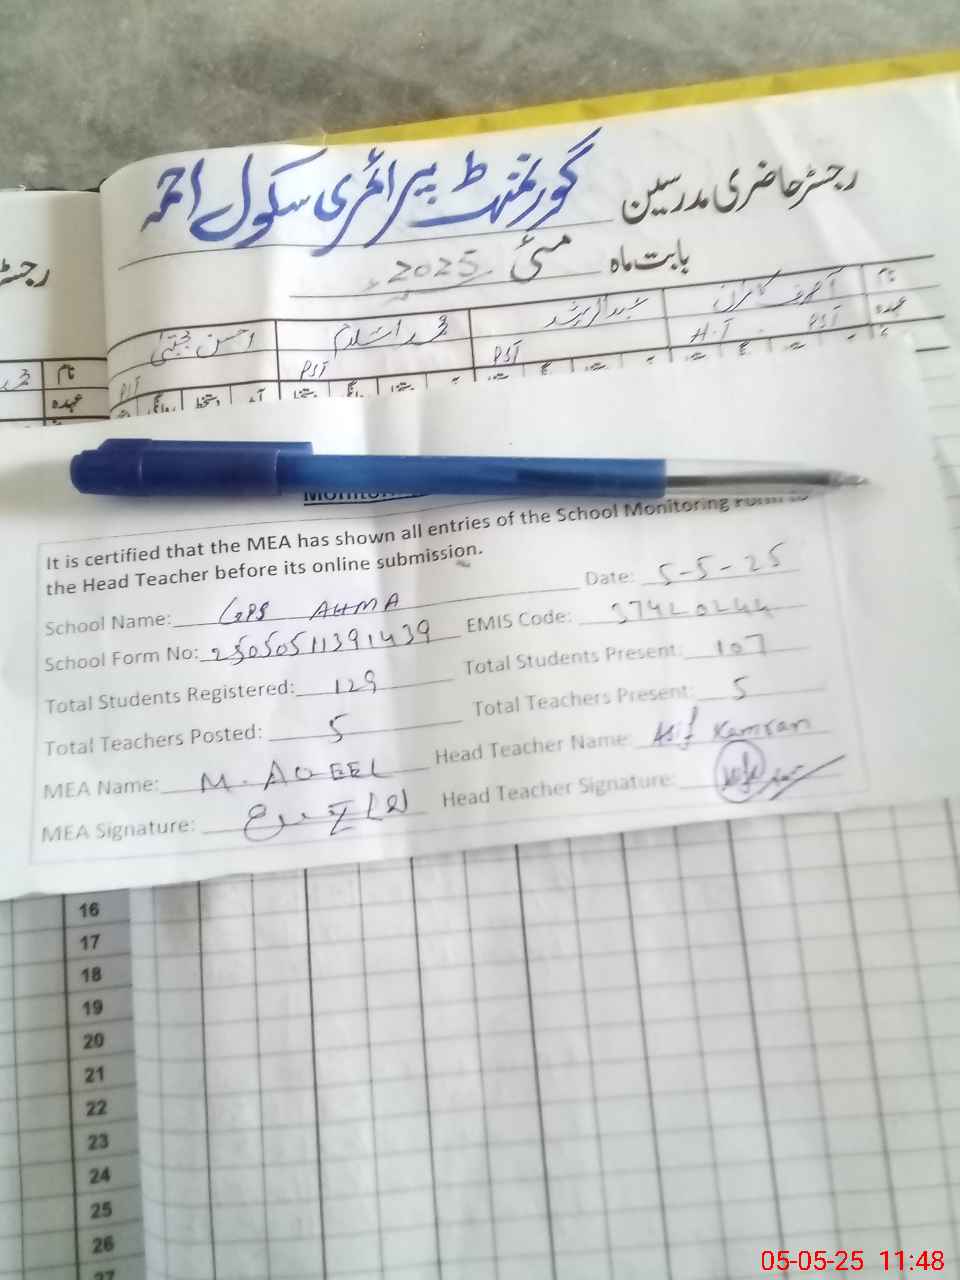 رجسٹر حاضری مدرسین گورنمنٹ پرائمری سکول احمہ
بابت ماہ مئی 2025ء
نام آصف کامران عبدالرشید محمد اسلام احسن مجتبیٰ
عہدہ PST H.T PST PST PST
رجسٹر
نام
عہدہ
It is certified that the MEA has shown all entries of the School Monitoring Form to
the Head Teacher before its online submission.
School Name: GPS AHMA Date: 5-5-25
School Form No: 25050511391439 EMIS Code: 37420244
Total Students Registered: 129 Total Students Present: 107
Total Teachers Posted: 5 Total Teachers Present: 5
MEA Name: M. AQEEL Head Teacher Name: Asif Kamran
MEA Signature: Head Teacher Signature:
16
17
18
19
20
21
22
23
24
25
26
27
05-05-25 11:48